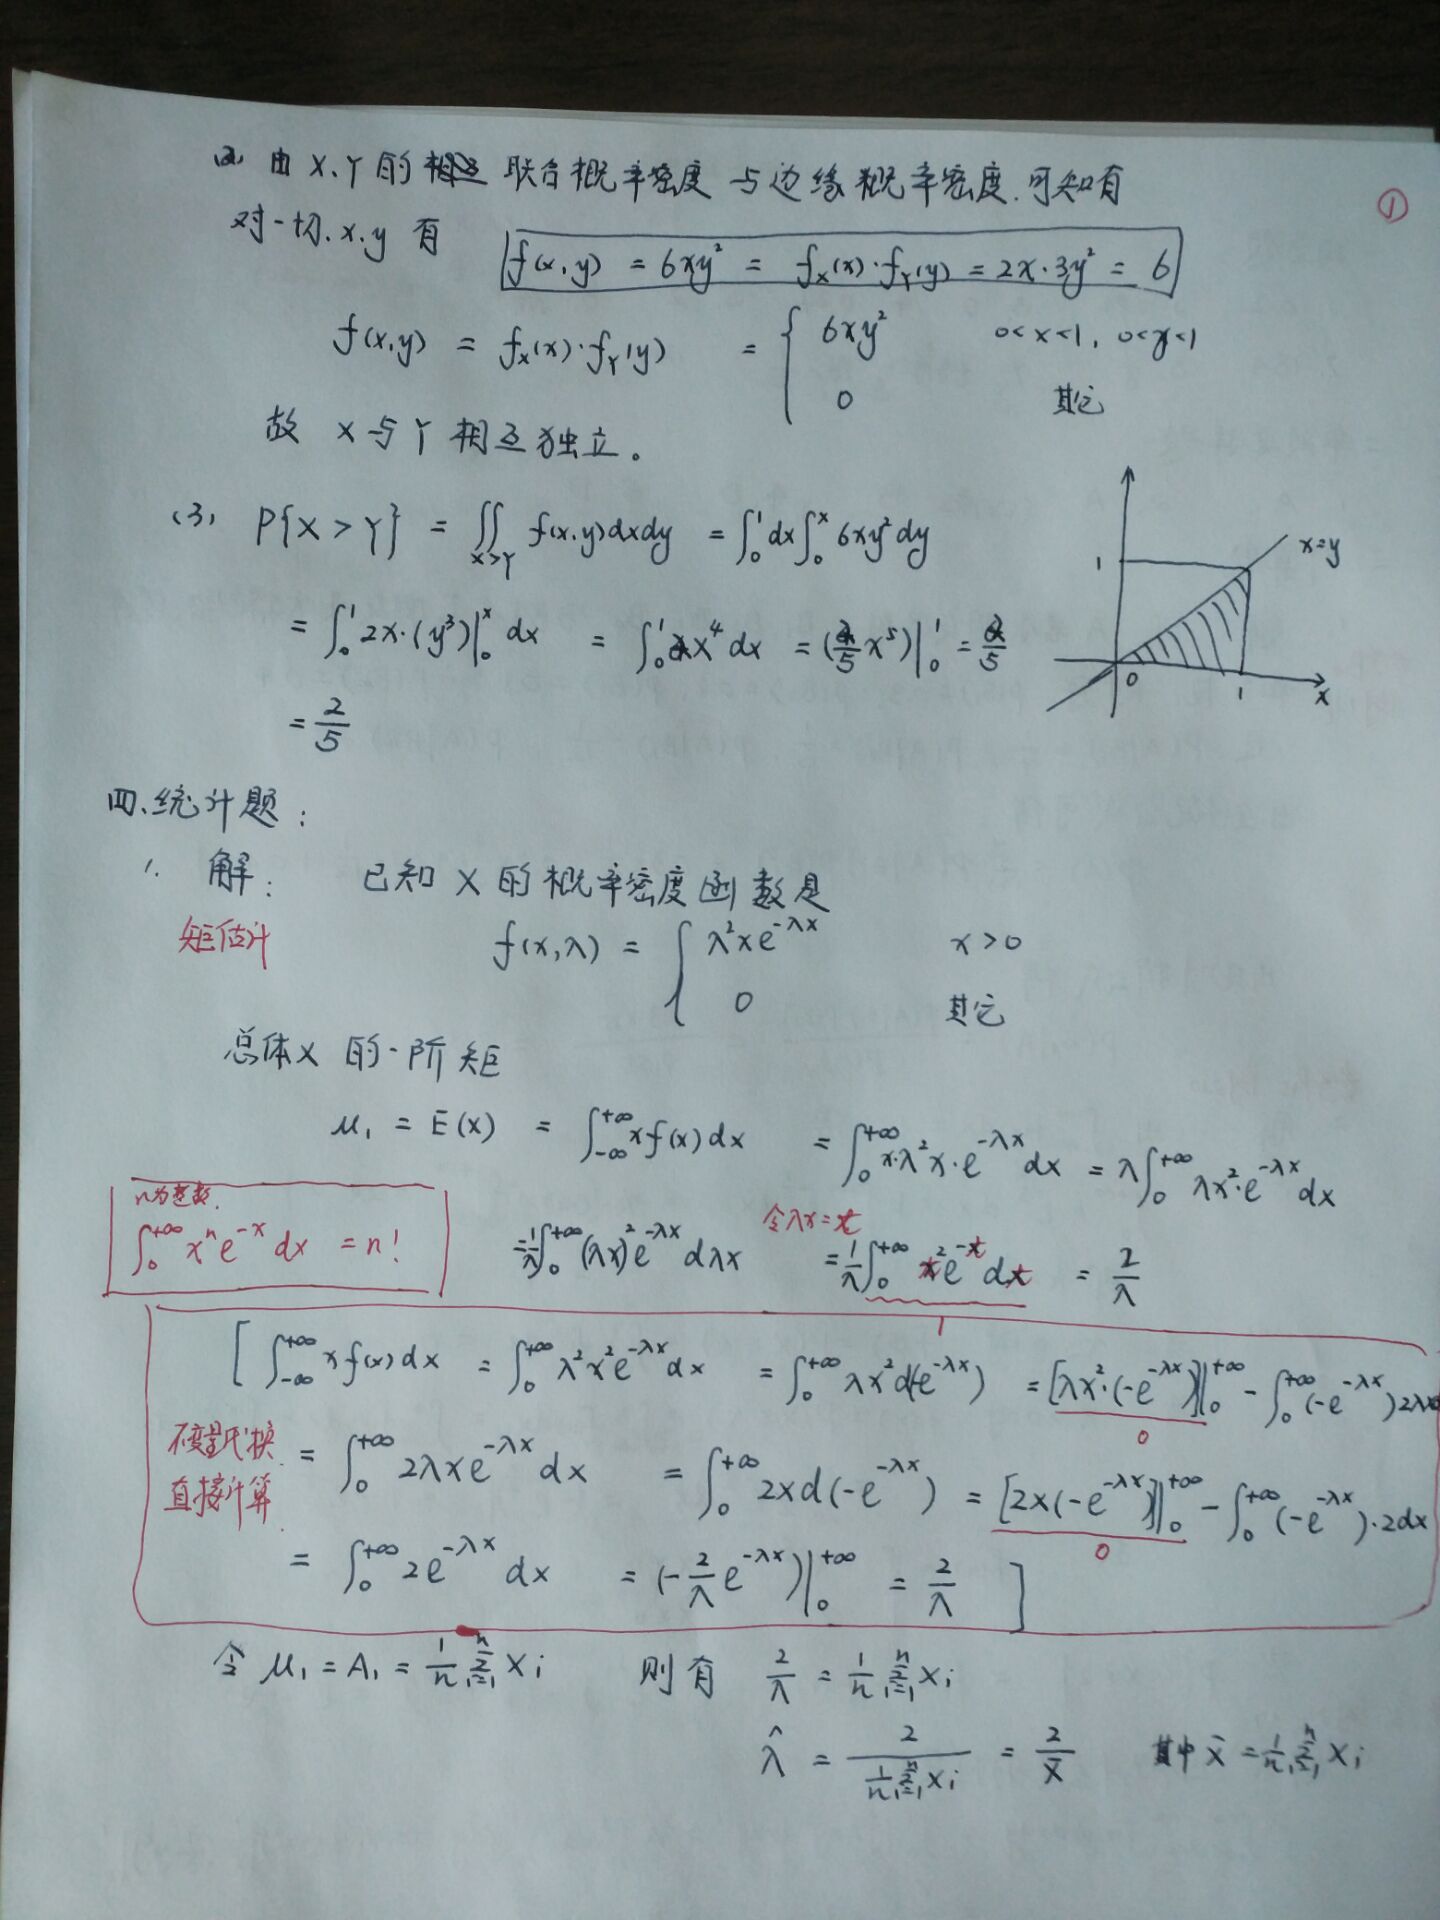 ①
(2) 由 X.Y 的 联合概率密度 与边缘概率密度.可知有
对一切.x.y 有 f(x,y) = 6xy² = f_X(x)·f_Y(y) = 2x·3y² = 6
f(x,y) = f_X(x)·f_Y(y) = { 6xy² 0<x<1, 0<y<1
0 其它
故 X与Y 相互独立。
(3) P{X>Y} = ∬_{X>Y} f(x,y)dxdy = ∫₀¹dx∫₀ˣ6xy²dy
= ∫₀¹2x·(y³)|₀ˣ dx = ∫₀¹2x⁴dx = (2/5 x⁵)|₀¹ = 2/5
= 2/5
x=y
1
0 1 x
四、统计题:
1. 解: 已知 X 的概率密度函数是
矩估计 f(x,λ) = { λ²xe^{-λx} x>0
0 其它
总体X 的一阶矩
μ₁ = E(x) = ∫_{-∞}^{+∞}xf(x)dx = ∫₀^{+∞}x·λ²x·e^{-λx}dx = λ∫₀^{+∞}λx²·e^{-λx}dx
n为整数.
∫₀^{+∞}xⁿe^{-x}dx = n!
= 1/λ∫₀^{+∞}(λx)²e^{-λx}dλx 令λx=t = 1/λ∫₀^{+∞}t²e^{-t}dt = 2/λ
[ ∫_{-∞}^{+∞}xf(x)dx = ∫₀^{+∞}λ²x²e^{-λx}dx = ∫₀^{+∞}λx²d(-e^{-λx}) = [λx²·(-e^{-λx})]|₀^{+∞} - ∫₀^{+∞}(-e^{-λx})2λx
0
不变量代换
直接计算.
= ∫₀^{+∞}2λxe^{-λx}dx = ∫₀^{+∞}2xd(-e^{-λx}) = [2x(-e^{-λx})]|₀^{+∞} - ∫₀^{+∞}(-e^{-λx})·2dx
0
= ∫₀^{+∞}2e^{-λx}dx = (-2/λ e^{-λx})|₀^{+∞} = 2/λ ]
令 μ₁ = A₁ = 1/n Σ_{i=1}^{n} Xi 则有 2/λ = 1/n Σ_{i=1}^{n} Xi
λ̂ = 2/(1/n Σ_{i=1}^{n} Xi) = 2/X̄ 其中 X̄ = 1/n Σ_{i=1}^{n} Xi